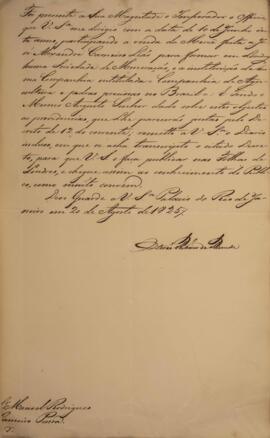 Foi presente a Sua Magestade o Imperador o Officio
que V. Sª me dirigio com a data de 10 de Junho des-
te anno, participando a venda da Mina feita a Jo-
sé Alexandre Carneiro Leão para formar em Lon-
huma Sociedade de Mineração, e a
ma Companhia intitulada = Companhia de Agri-
cultura e no Brasil = E tendo o
Mesmo Augusto Senhor dado sobre estes objectos
as providencias que lhe pareceráo justas pelo De-
creto de 12 do corrente; remetto a V. Sª o Diario
incluso, em que se acha transcripto o citado Decre-
to, para que V. S. o faça publicar nas Folhas de
Londres, e chegue assim ao conhecimento do Publi-
co, como muito convem.
Deos Guarde a V. Sª Palacio do Rio de Ja-
neiro em 20 de Agosto de 1825
Sr Manoel Rodrigues
Gameiro Pessoa.